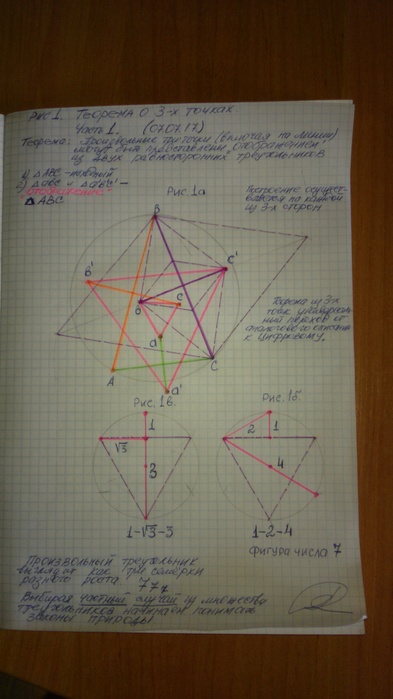 Рис 1. Теорема о 3-х точках
Часть 1. (07.07.17)
Теорема: Произвольные три точки (включая на линии)
могут быть представлены "отображением"
из двух равносторонних треугольников
1) △ABC - любой
2) △abc и △a'b'c' -
"отображение"
△ABC
Рис. 1а
Построение осущест-
вляется на каждой
из 3-х сторон
B
b'
c'
c
b
a
A
C
a'
Теорема из 3-х
точек универсаль-
ный переход от
аналогового описания
к цифровому.
Рис. 1в.
Рис. 1б.
1
√3
3
2
1
4
1-√3-3
1-2-4
фигура числа 7
Произвольный треугольник
выглядит как три семёрки
разного роста 777
Выбирая частный случай из множества
треугольников начинаем понимать
законы природы